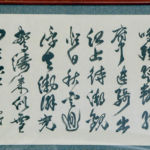 鳴弦暫輟彈
府中連騎出
江上待潮觀
照日秋雲迥
浮天渤澥寬
驚濤來似雪